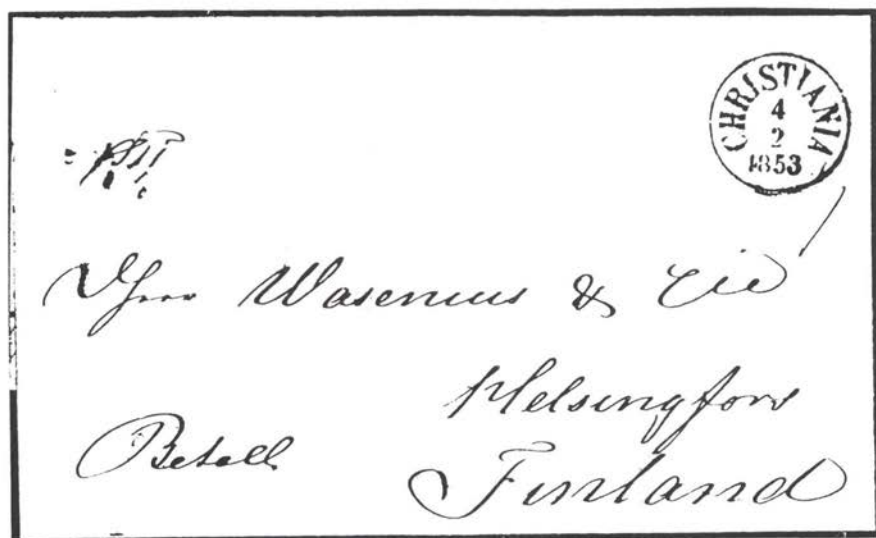 CHRISTIANIA
4
2
1853
Herr Wasenius & Cie
Helsingfors
Betalt
Finland